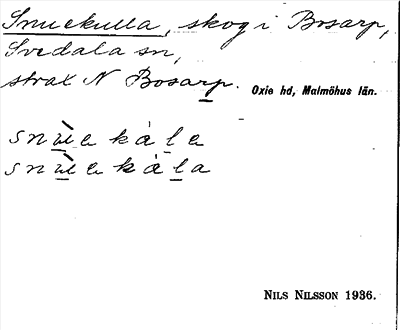 Snuekulla, skog i Bosarp,
Svedala sn,
strax N Bosarp.
Oxie hd, Malmöhus län.
snù̲e kȧl̲e
snù̲e kȧl̲a
NILS NILSSON 1936.